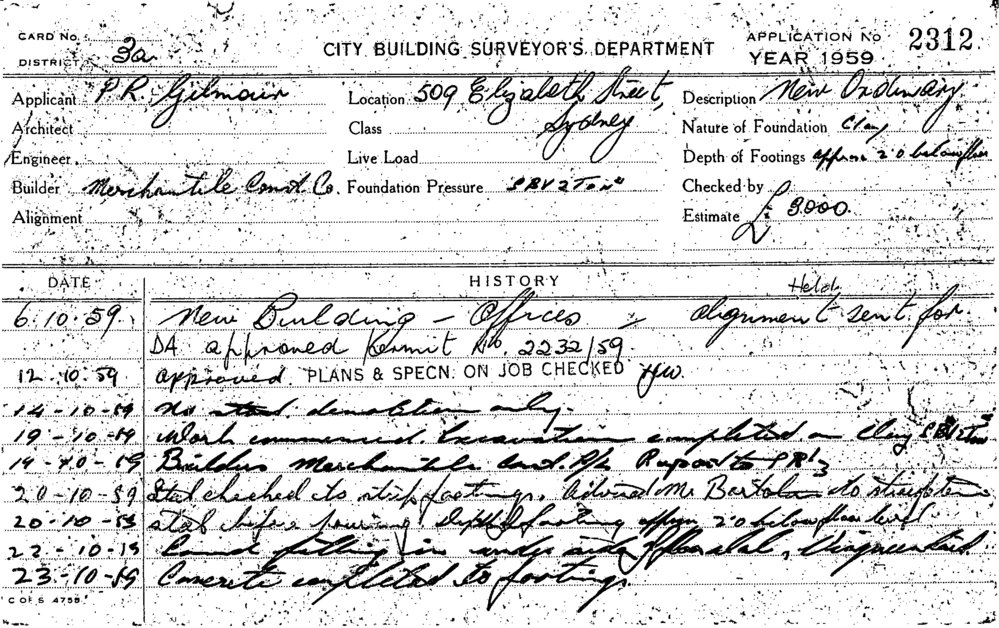 CARD No.
DISTRICT 3a
CITY BUILDING SURVEYOR'S DEPARTMENT
APPLICATION No 2312
YEAR 1959
Applicant P.R. Gilmour
Location 509 Elizabeth Street, Sydney
Description New Ordinary
Architect
Class
Nature of Foundation Clay
Engineer
Live Load
Depth of Footings approx 2'0 below floor
Builder Merchantile Const. Co.
Foundation Pressure
Checked by
Alignment
Estimate £ 3000.
DATE
HISTORY
6.10.59. New Building - Offices - Held alignment sent for
DA approved Permit No. 2232/59.
12.10.59 approved PLANS & SPECN. ON JOB CHECKED
14-10-59 No demolition only.
19-10-59 Work commenced. Excavation completed on Clay
19-10-59 Builders Merchantile Const. P/L
20-10-59 Steel checked to strip footings. Advised Mr to
20-10-59 steel before pouring Depth of footing approx 2'0 below floor level
22-10-59 filling in under
23-10-59 Concrete completed to footings.
C OF S 4755